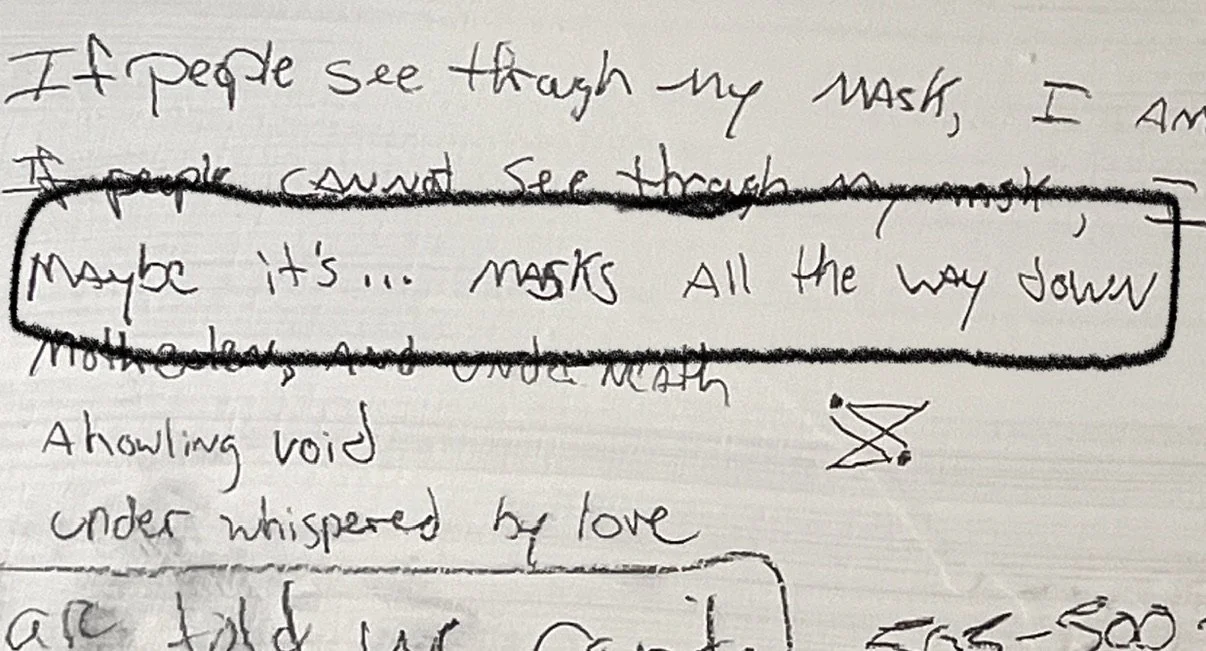 If people see though my mask, I am
If people cannot see through my mask, I
Maybe it's... masks all the way down
and underneath
A howling void
under whispered by love
are told